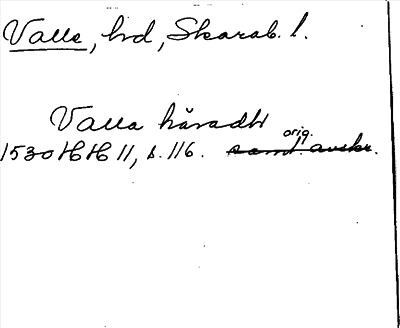 Valle, hd, Skarab. l.
Valla häradh
orig.
1530 HH 11, s. 116. samt. avskr.